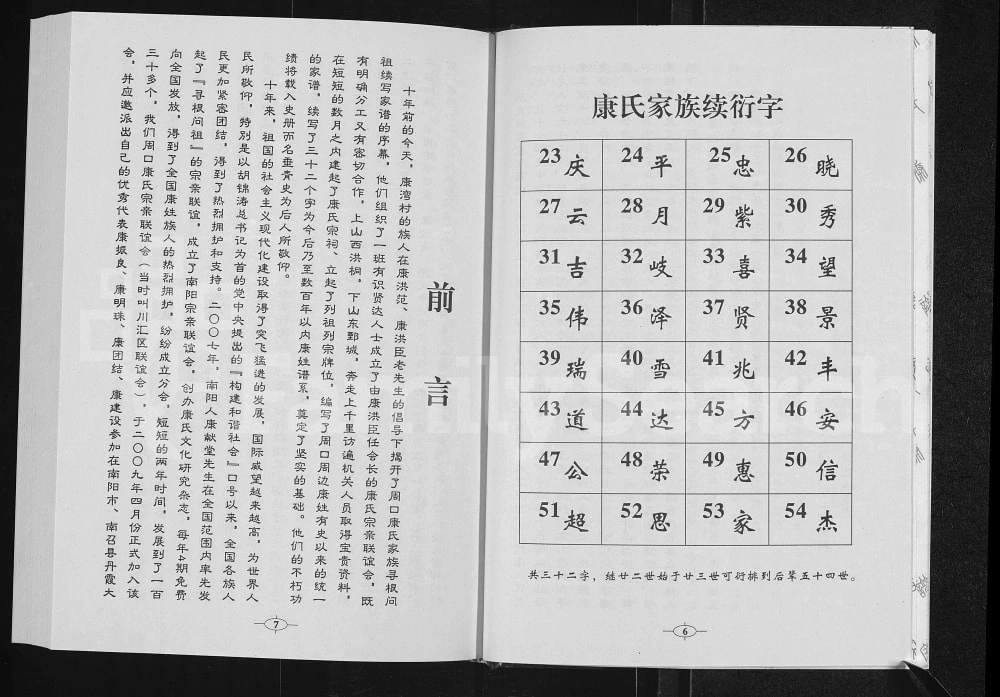 康氏家族续衍字
23庆 24平 25忠 26晓
27云 28月 29紫 30秀
31吉 32岐 33喜 34望
35伟 36泽 37贤 38景
39瑞 40雪 41兆 42丰
43道 44达 45方 46安
47公 48荣 49惠 50信
51超 52思 53家 54杰
共三十二字，继廿二世始于廿三世可衍排到后辈五十四世。
6
前言
十年前的今天，康湾村的族人在康洪范、康洪臣老先生的倡导下揭开了周口康氏家族寻根问
祖续写家谱的序幕，他们组织了一班有识贤达人士成立了由康洪臣任会长的康氏宗亲联谊会，既
有明确分工又有密切合作，上山西洪桐，下山东鄄城，奔走上千里访遍机关人员取得宝贵资料，
在短短的数月之内建起了康氏宗祠、立起了列祖列宗牌位，编写了周口周边康姓有史以来的统一
的家谱，续写了三十二个字为今后乃至数百年以内康姓谱系，奠定了坚实的基础。他们的不朽功
绩将载入史册而名垂青史为后人所敬仰。
十年来，祖国的社会主义现代化建设取得了突飞猛进的发展，国际威望越来越高，为世界人
民所敬仰，特别是以胡锦涛总书记为首的党中央提出的『构建和谐社会』口号以来，全国各族人
民更加紧密团结，得到了热烈拥护和支持。二〇〇七年，南阳人康献堂先生在全国范围内率先发
起了『寻根问祖』的宗亲联谊，成立了南阳宗亲联谊会，创办康氏文化研究杂志，每年4期免费
向全国发放，得到了全国康姓族人的热烈拥护，纷纷成立分会，短短的两年时间，发展到了一百
三十多个，我们周口康氏宗亲联谊会（当时叫川汇区联谊会），于二〇〇九年四月份正式加入该
会，并应邀派出自己的优秀代表康振良、康明珠、康团结、康建设参加在南阳市、南召县丹霞大
7